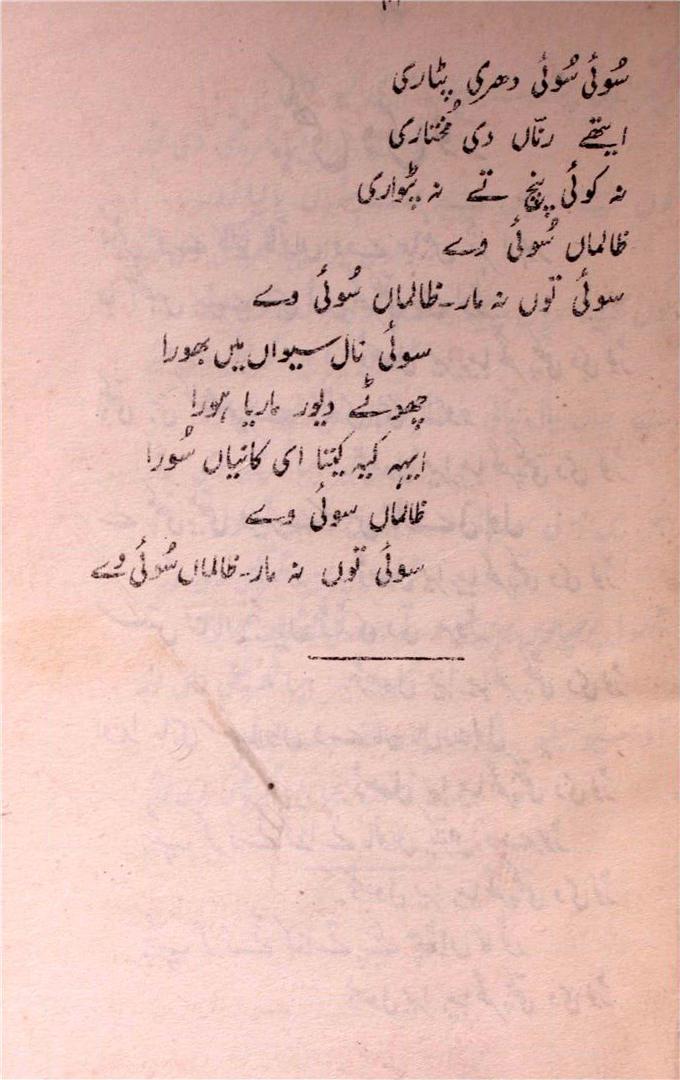 سُوئی سُوئی دھری پٹاری
ایتھے رنّاں دی مُختاری
نہ کوئی پنچ تے نہ پٹواری
ظالماں سُوئی وے
سوئی توں نہ مار۔ ظالماں سُوئی وے
سوئی نال سیواں میں بھورا
چھوٹے دیور ماریا ہورا
ایہہ کیہ کیتا ای کانیاں سُورا
ظالماں سوئی وے
سوئی توں نہ مار۔ ظالماں سُوئی وے